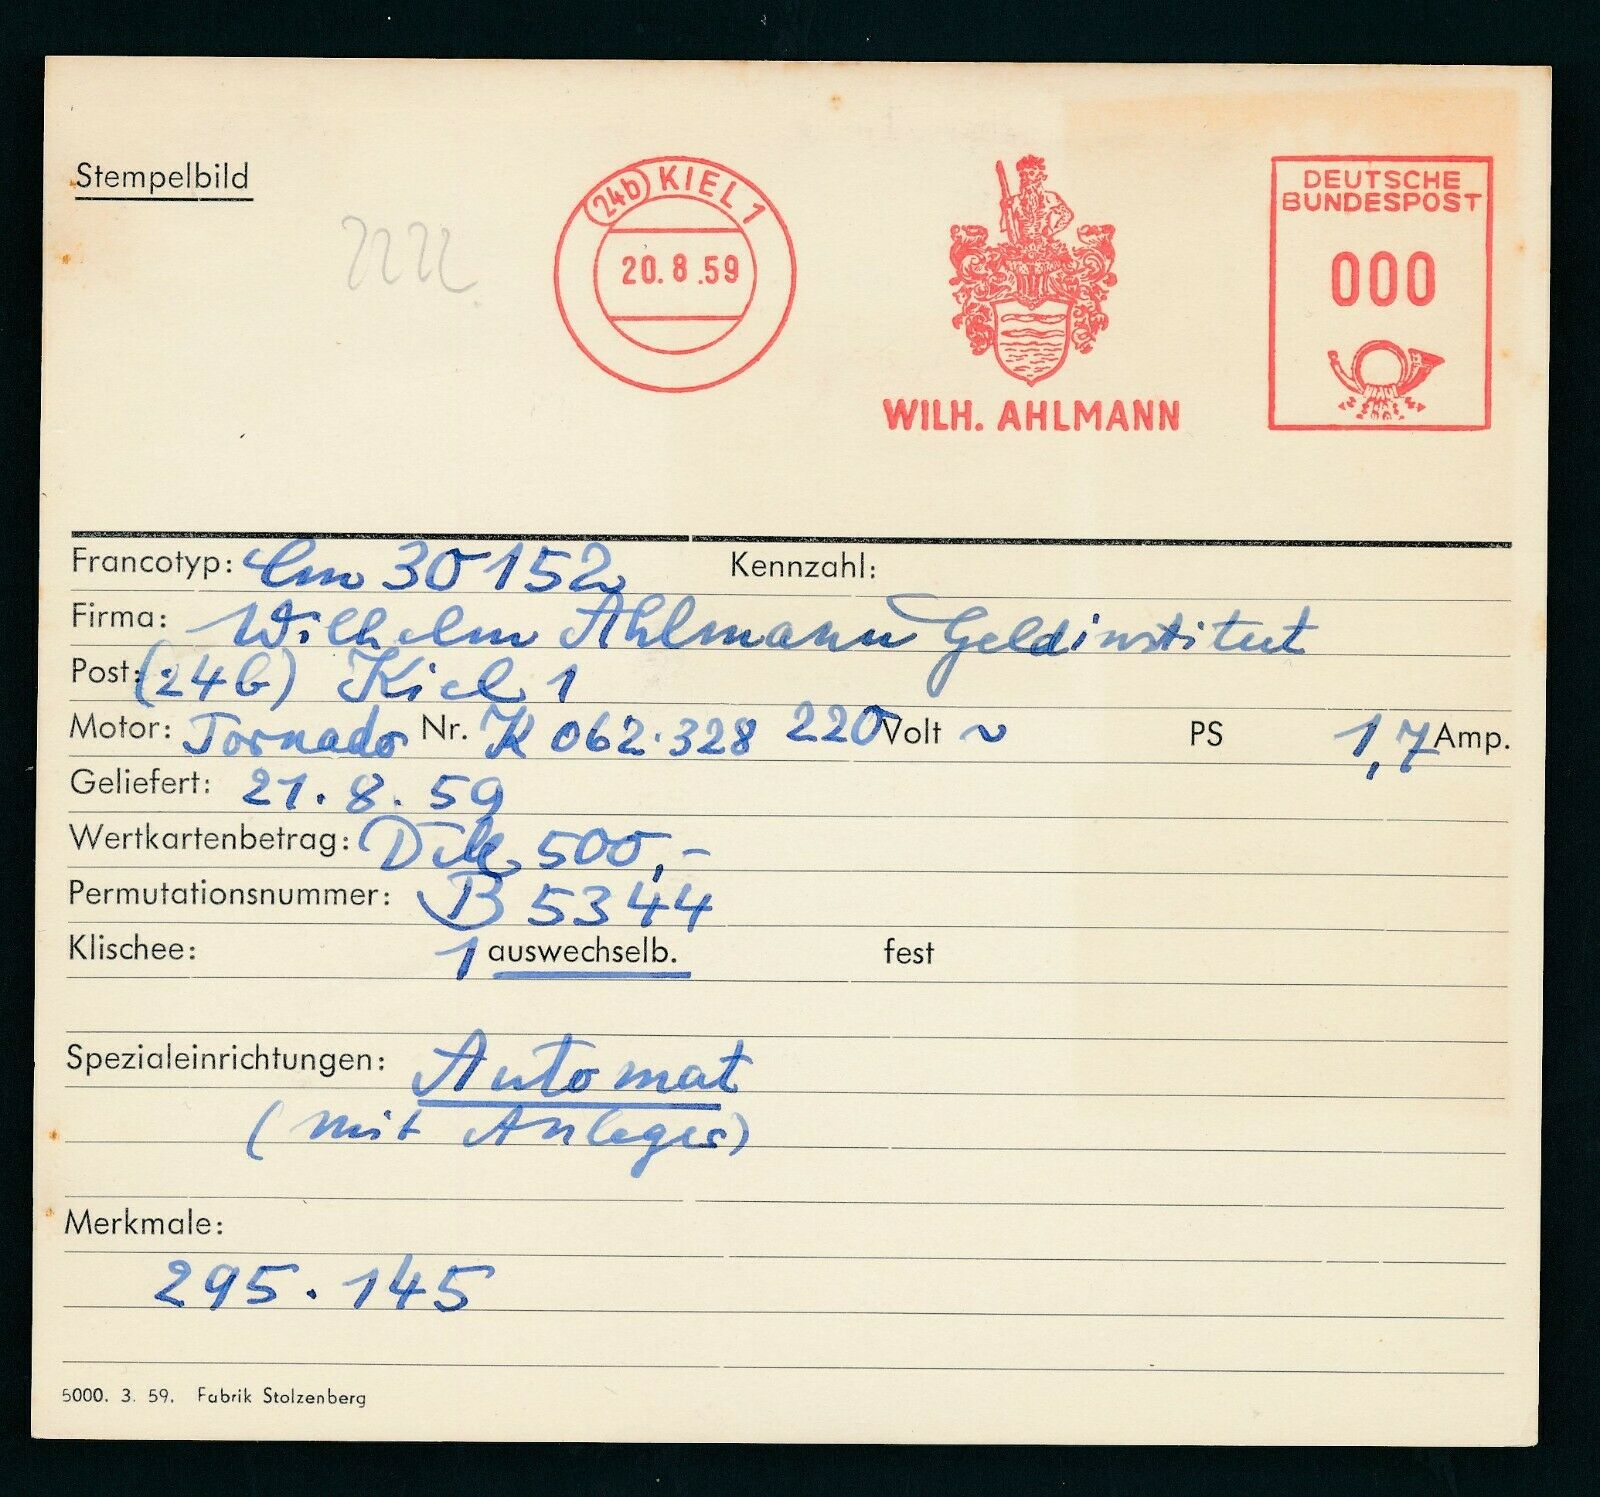 Stempelbild
24b KIEL 1
20.8.59
WILH. AHLMANN
DEUTSCHE
BUNDESPOST
000
Francotyp: Cm 30152 Kennzahl:
Firma: Wilhelm Ahlmann Geldinstitut
Post: (24b) Kiel 1
Motor: Tornado Nr. K 062.328 220 Volt ~ PS 1,7 Amp.
Geliefert: 21.8.59
Wertkartenbetrag: DM 500,-
Permutationsnummer: B 5344
Klischee: 1 auswechselb. fest
Spezialeinrichtungen: Automat
(mit Anleger)
Merkmale:
295.145
5000. 3. 59. Fabrik Stolzenberg